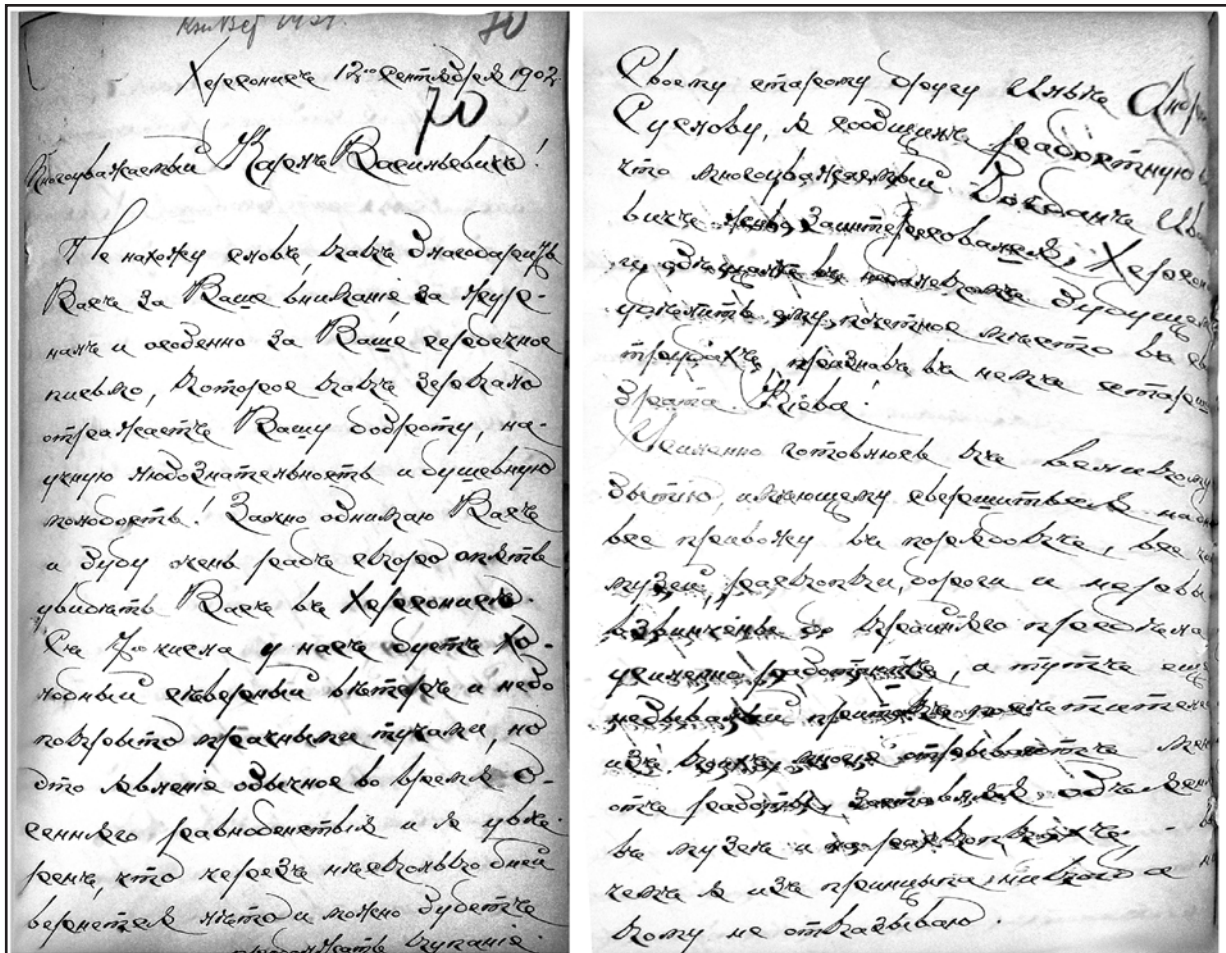 70
Херсонисъ 12го Сентября 1902
70
Многоуважаемый Карлъ Васильевичъ!
Не нахожу словъ, какъ благодарить
Васъ за Ваше вниманіе, за жур-
налъ и особенно за Ваше сердечное
письмо, которое какъ зеркало
отражаетъ Вашу доброту, на-
учную любознательность и душевную
молодость! Заочно обнимаю Васъ
и буду очень радъ скоро опять
увидѣть Васъ въ Херсонисѣ.
Съ 7го числа у насъ дуетъ хо-
лодный сѣверный вѣтеръ и небо
покрыто мрачными тучами, но
это явленіе обычное во время о-
сенняго равноденствія и я увѣ-
ренъ, что черезъ нѣсколько дней
вернется лѣто и можно будетъ
продолжать купаніе.
Своему старому другу Ильѣ
Суслову, я сообщилъ радостную
что многоуважаемый Богданъ Ив
вичъ заинтересовался Херсон
и въ недалекомъ будущем
удѣлить ему почетное мѣсто въ св
трудахъ, признавъ въ немъ старш
брата Кіева!
Усиленно готовлюсь къ великому
бытію, имѣющему совершиться
все привожу въ порядокъ, все
музей, раскопки, дороги и нервы
взвинчены до крайняго предѣла
усиленно работаютъ, а тутъ ещ
небывалый притокъ посѣтителе
изъ коихъ многіе отрываютъ мен
отъ работы, заставляя объясн
въ музеѣ и на раскопкахъ,
чемъ я изъ принципа никогда н
кому не отказываю.